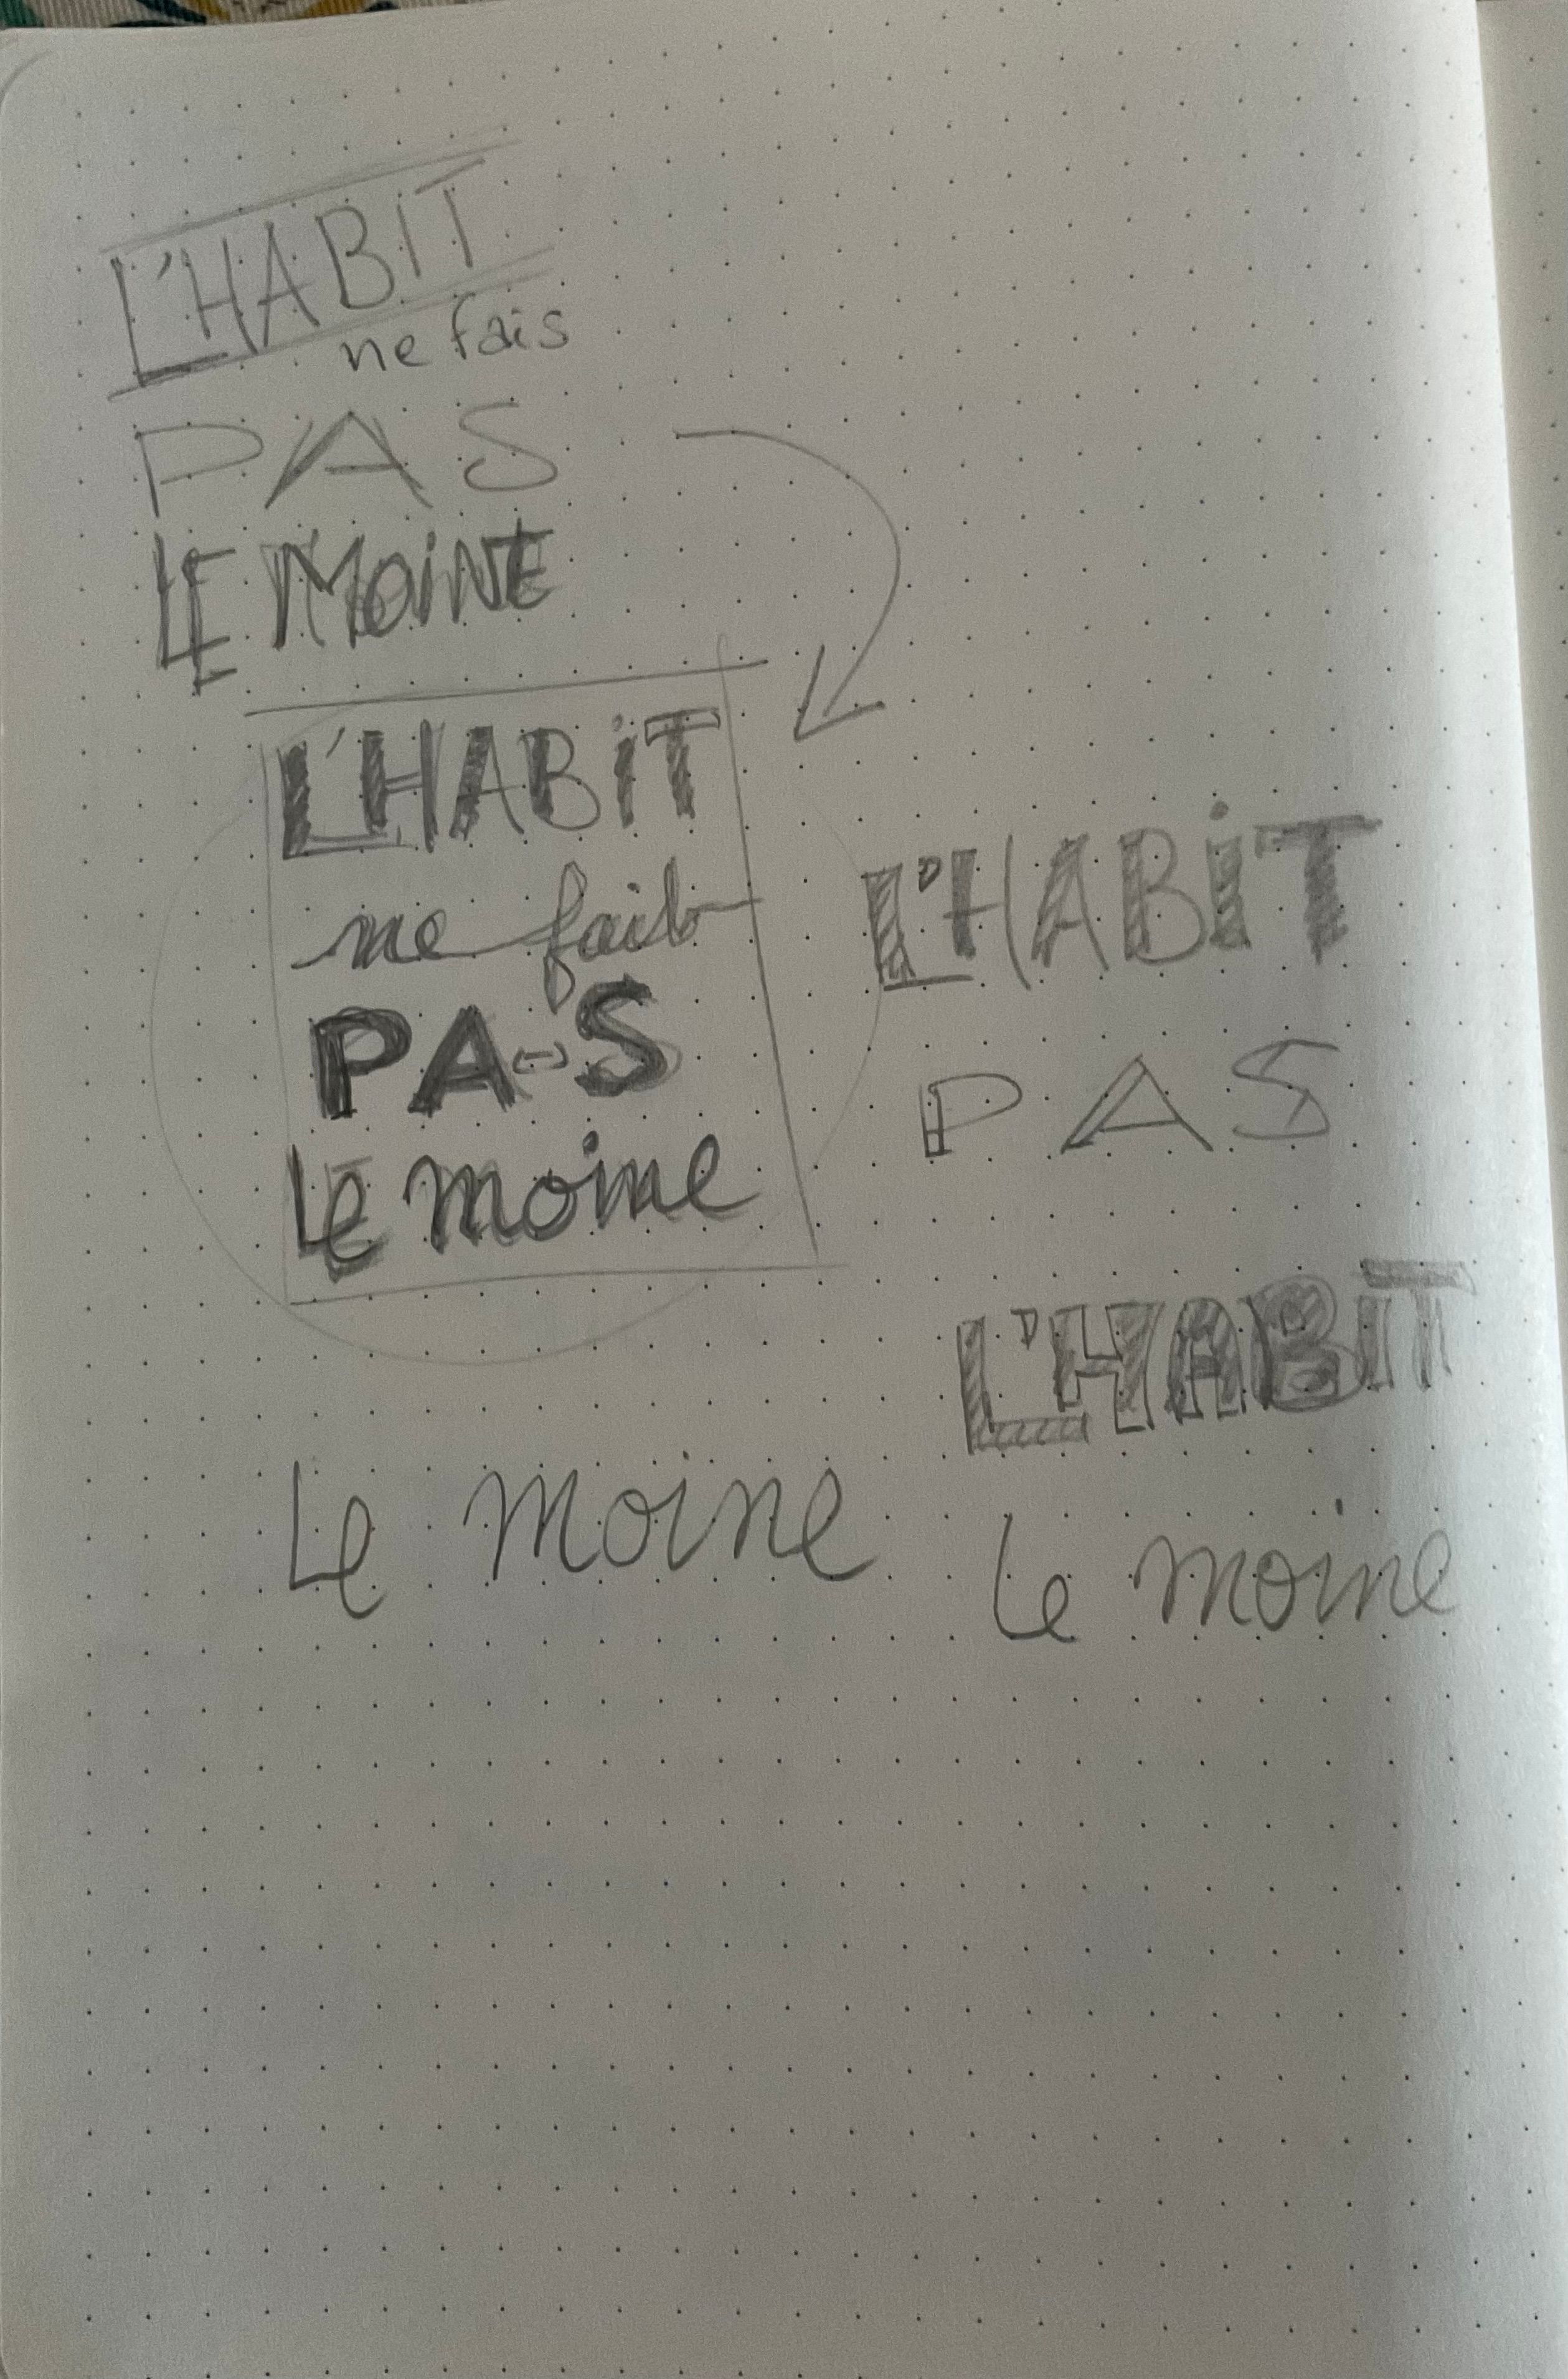 L'HABIT
ne fais
PAS
LE MOiNE
L'HABiT
ne fait
PAS
Le moine
L'HABiT
PAS
L'HABiT
Le moine
Le moine